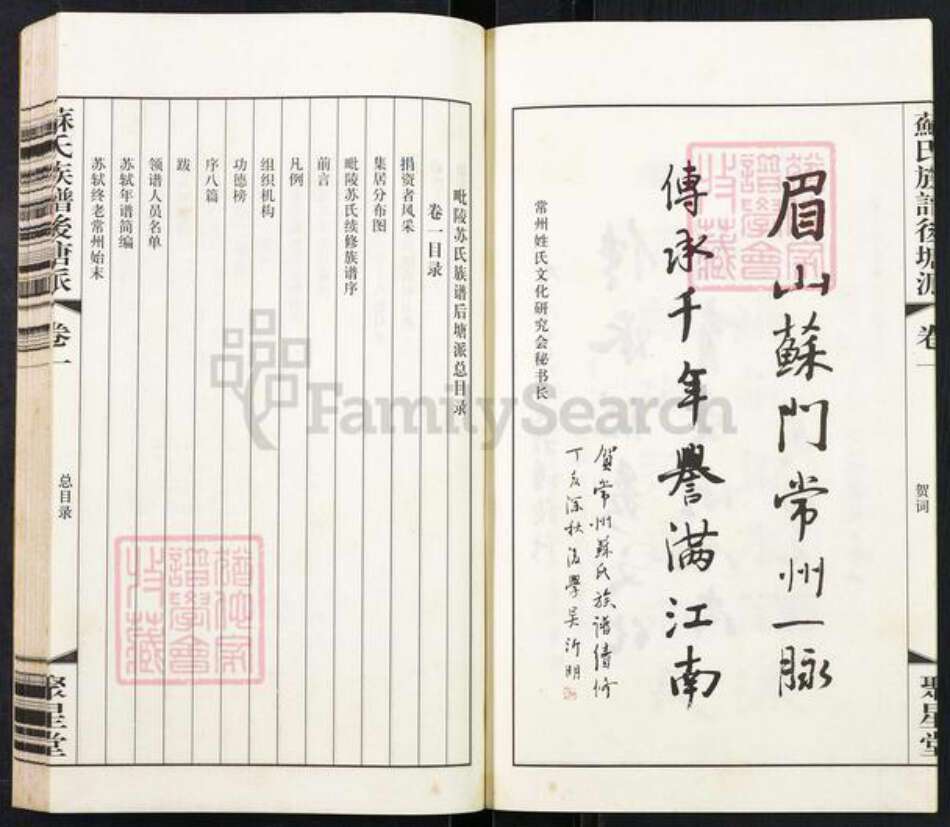 蘇氏族譜後塘派
卷一
贺词
聚星堂
眉山蘇門常州一脉
傳承千年譽滿江南
賀常州蘇氏族譜續修
丁亥深秋後學吴沂明
常州姓氏文化研究会秘书长
毗陵苏氏族谱后塘派总目录
卷一目录
捐资者风采
集居分布图
毗陵苏氏续修族谱序
前言
凡例
组织机构
功德榜
序八篇
跋
领谱人员名单
苏轼年谱简编
苏轼终老常州始末
蘇氏族譜後塘派
卷一
总目录
聚星堂
FamilySearch